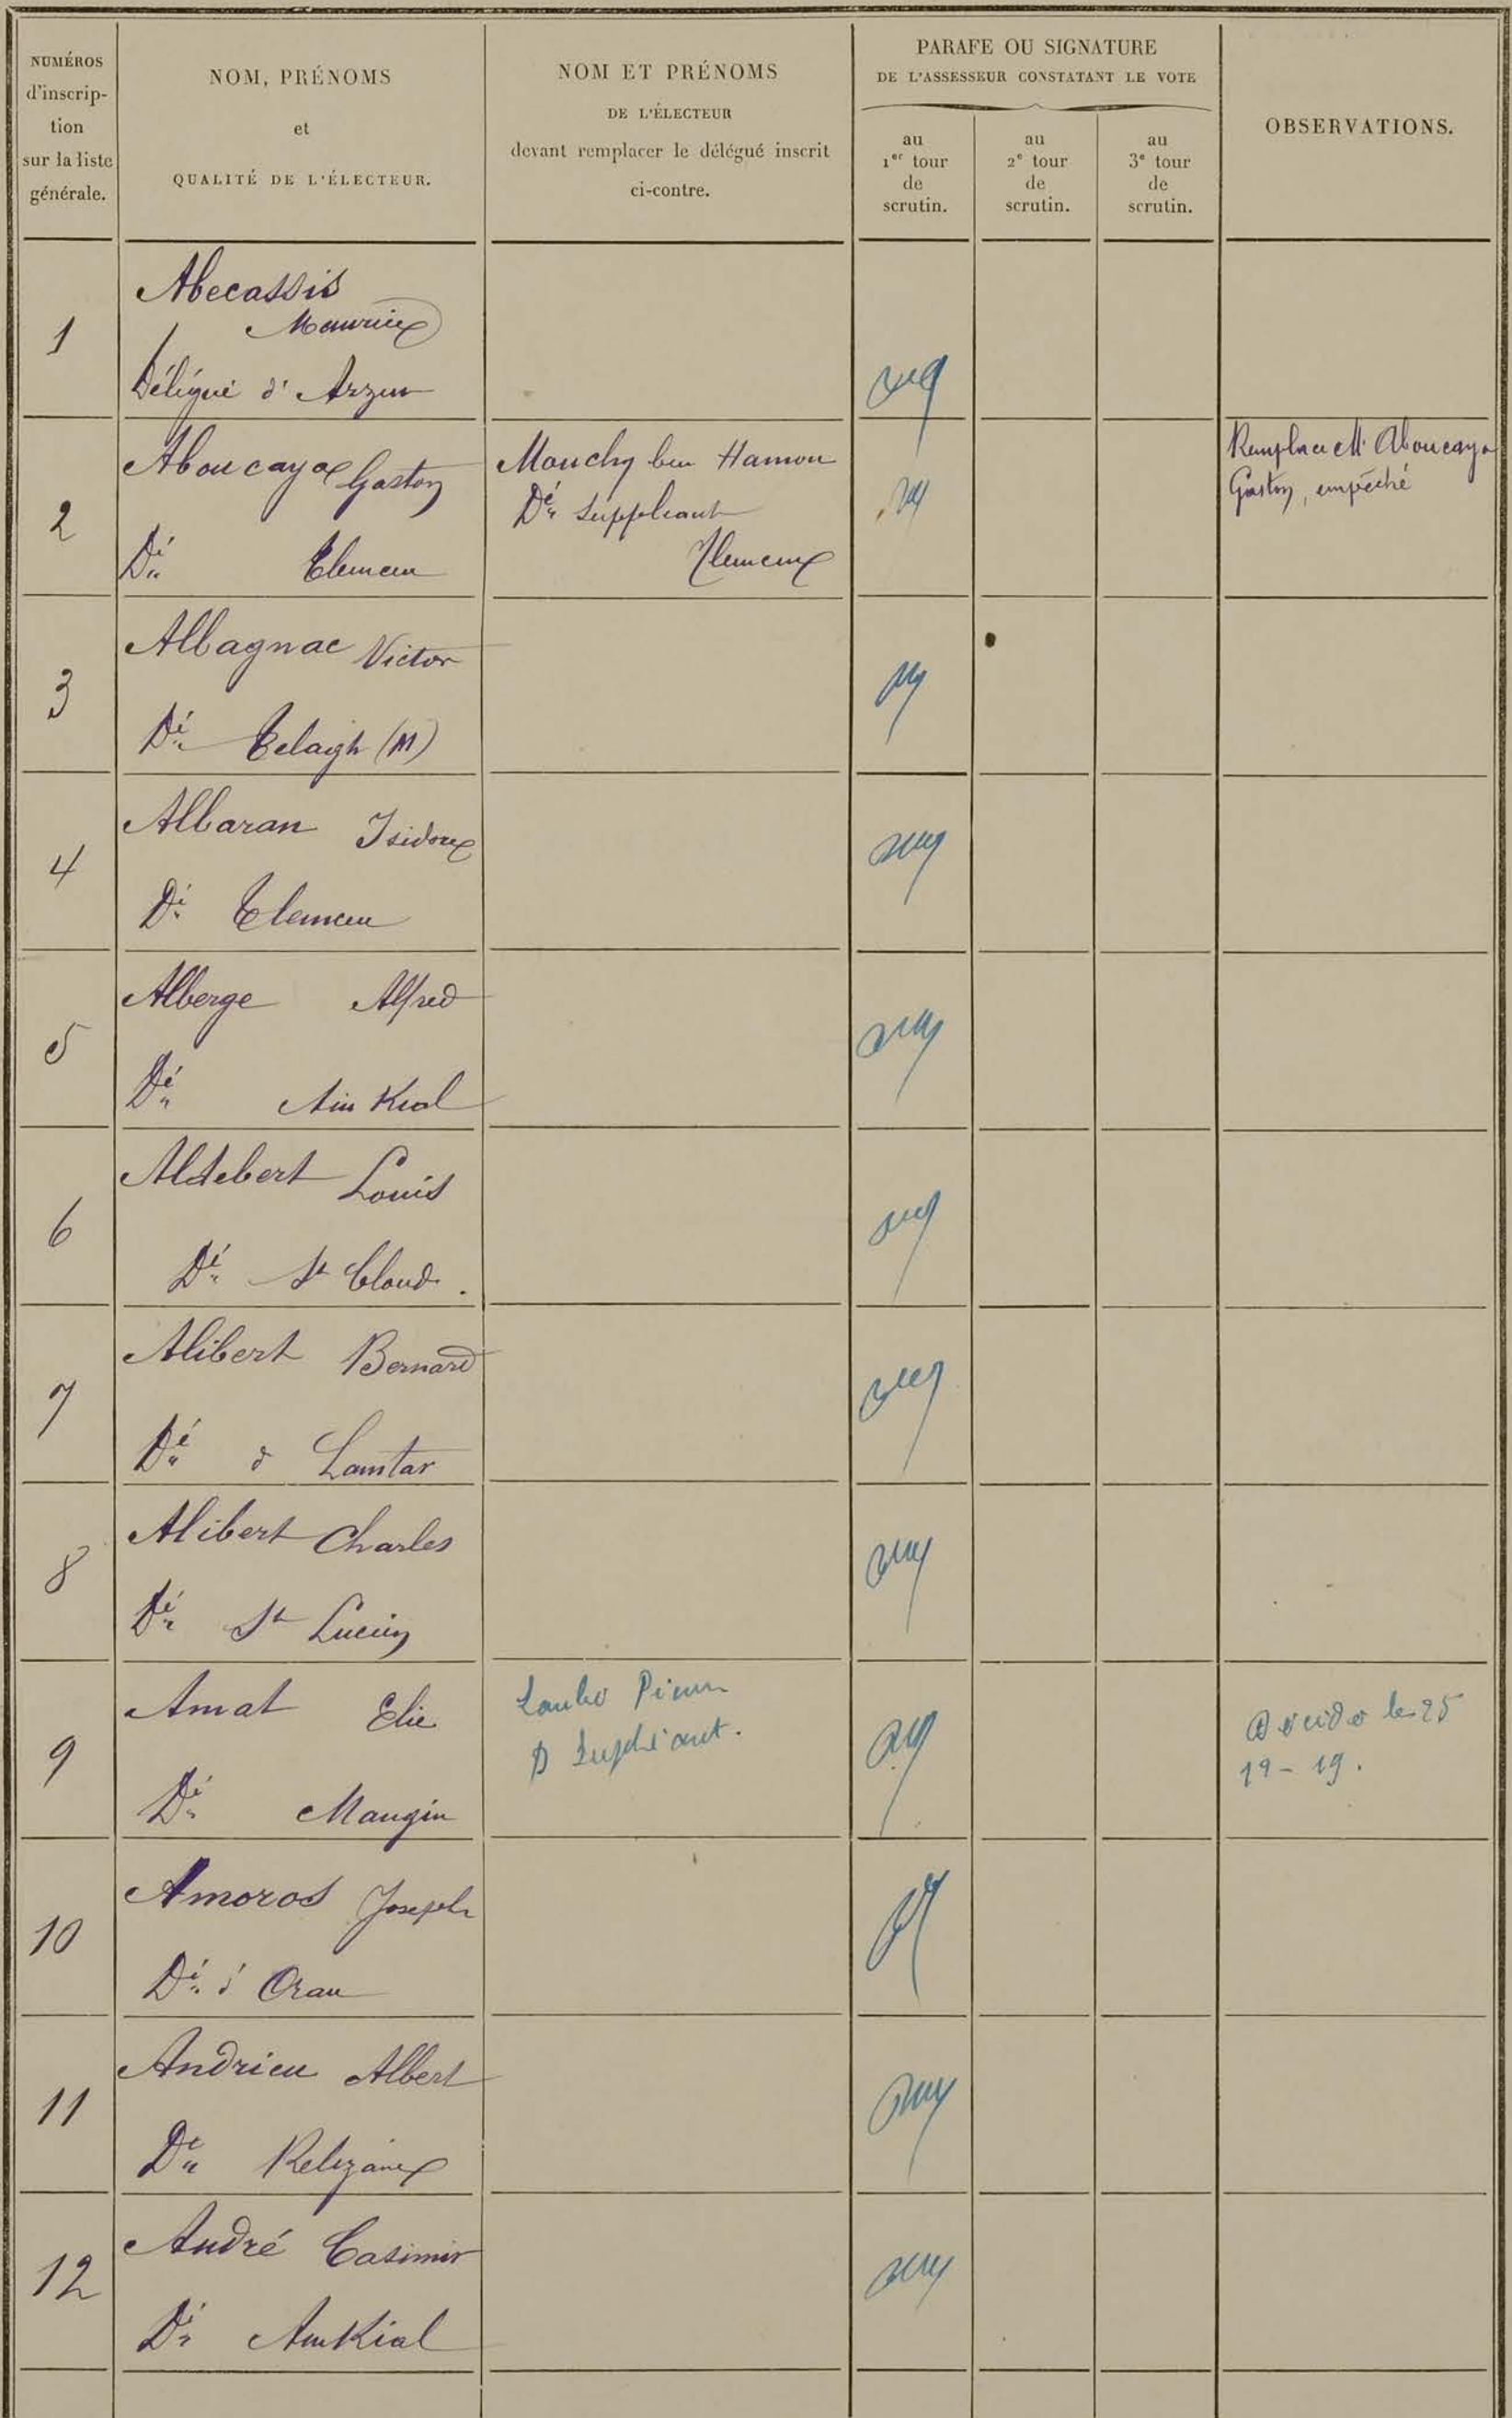 NUMÉROS
d'inscrip-
tion
sur la liste
générale.
NOM, PRÉNOMS
et
QUALITÉ DE L'ÉLECTEUR.
NOM ET PRÉNOMS
DE L'ÉLECTEUR
devant remplacer le délégué inscrit
ci-contre.
PARAFE OU SIGNATURE
DE L'ASSESSEUR CONSTATANT LE VOTE
au
1er tour
de
scrutin.
au
2e tour
de
scrutin.
au
3e tour
de
scrutin.
OBSERVATIONS.
1
Abecassis
Maurice
Délégué d' Arzew
2
Aboucaya Gaston
Dé Tlemcen
Mouchy ben Hamou
Dé suppléant
Tlemcen
Remplace M. Aboucaya
Gaston, empêché
3
Albagnac Victor
Dé Telagh (M)
4
Albaran Isidore
Dé Tlemcen
5
Alberge Alfred
Dé Ain Kial
6
Aldebert Louis
Dé St Cloud.
7
Alibert Bernard
Dé d Lamtar
8
Alibert Charles
Dé St Lucien
9
Amat Elie
Dé Mangin
D suppléant.
le 25
19-19.
10
Amoros Joseph
Dé d' Oran
11
Andrieu Albert
Dé Relizane
12
André Casimir
Dé Ain Kial